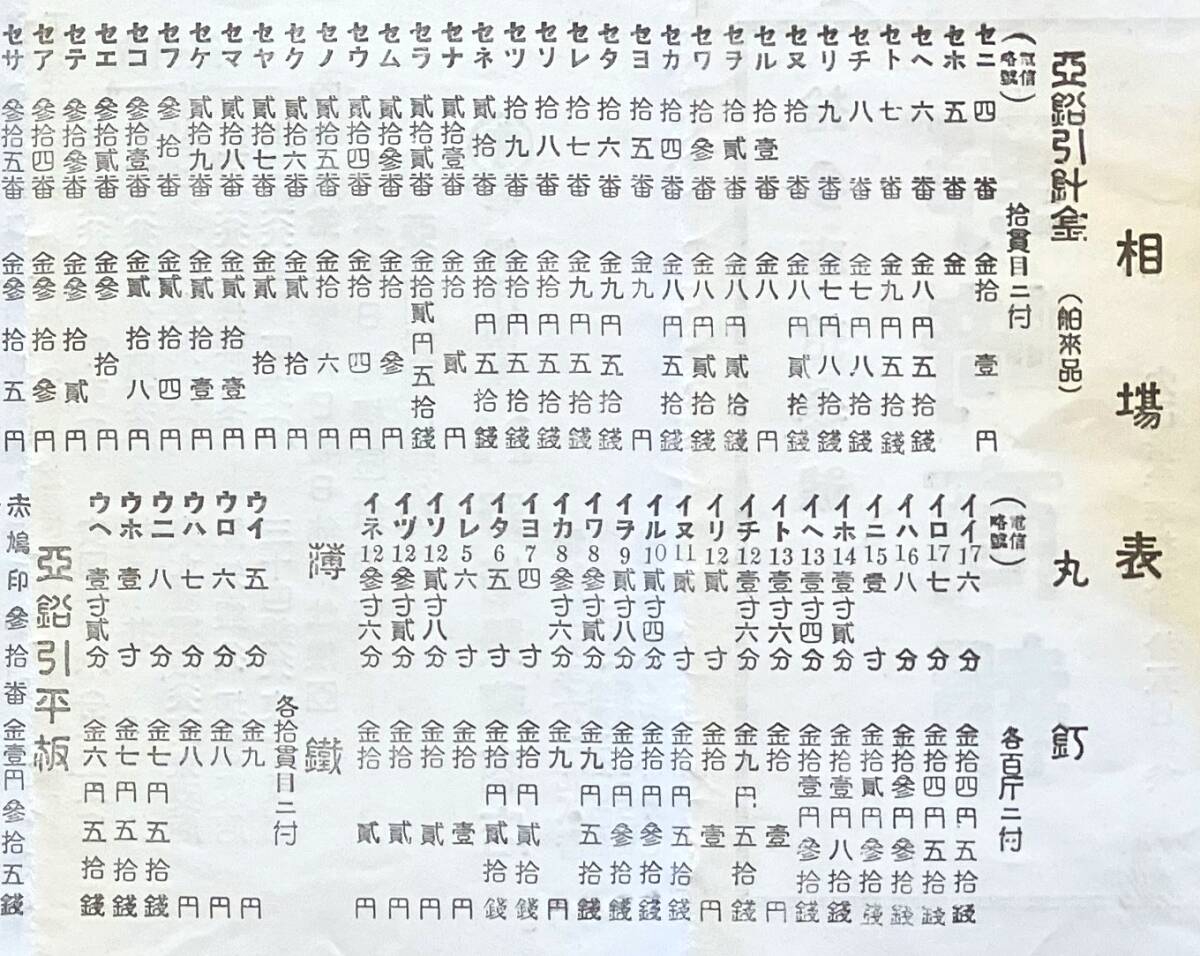 相場表
亞鉛引針金(舶來品)
(電信略號) 拾貫目ニ付
セニ 四番 金拾壹円
セホ 五番 金
セヘ 六番 金八円五拾錢
セト 七番 金九円五拾錢
セチ 八番 金七円八拾錢
セリ 九番 金七円八拾錢
セヌ 拾番 金八円貳拾錢
セル 拾壹番 金八円
セヲ 拾貳番 金八円貳拾錢
セワ 拾參番 金八円貳拾錢
セカ 拾四番 金八円五拾錢
セヨ 拾五番 金九円
セタ 拾六番 金九円五拾錢
セレ 拾七番 金九円五拾錢
セソ 拾八番 金拾円五拾錢
セツ 拾九番 金拾円五拾錢
セネ 貳拾番 金拾円五拾錢
セナ 貳拾壹番 金拾貳円
セラ 貳拾貳番 金拾貳円五拾錢
セム 貳拾參番 金拾參円
セウ 貳拾四番 金拾四円
セノ 貳拾五番 金拾六円
セク 貳拾六番 金貳拾円
セヤ 貳拾七番 金貳拾円
セマ 貳拾八番 金貳拾壹円
セケ 貳拾九番 金貳拾壹円
セフ 參拾番 金貳拾四円
セコ 參拾壹番 金貳拾八円
セエ 參拾貳番 金參拾円
セテ 參拾參番 金參拾貳円
セア 參拾四番 金參拾參円
セサ 參拾五番 金參拾五円
丸釘
(電信略號) 各百斤ニ付
イイ 17 六分 金拾四円五拾錢
イロ 17 七分 金拾四円五拾錢
イハ 16 八分 金拾參円參拾錢
イニ 15 壹寸 金拾貳円參拾錢
イホ 14 壹寸貳分 金拾壹円八拾錢
イヘ 13 壹寸四分 金拾壹円參拾錢
イト 13 壹寸六分 金拾壹円
イチ 12 壹寸六分 金九円五拾錢
イリ 12 貳寸 金拾壹円
イヌ 11 貳寸 金拾円五拾錢
イル 10 貳寸四分 金拾円參拾錢
イヲ 9 貳寸八分 金拾円參拾錢
イワ 8 參寸貳分 金九円五拾錢
イカ 8 參寸六分 金九円
イヨ 7 四寸 金拾円貳拾錢
イタ 6 五寸 金拾円貳拾錢
イレ 5 六寸 金拾壹円
イソ 12 貳寸八分 金拾貳円
イヅ 12 參寸貳分 金拾貳円
イネ 12 參寸六分 金拾貳円
薄鐵
各拾貫目ニ付
ウイ 五分 金九円
ウロ 六分 金八円
ウハ 七分 金八円
ウニ 八分 金七円五拾錢
ウホ 壹寸 金七円五拾錢
ウヘ 壹寸貳分 金六円五拾錢
亞鉛引平板
赤鳩印參拾番金壹円參拾五錢